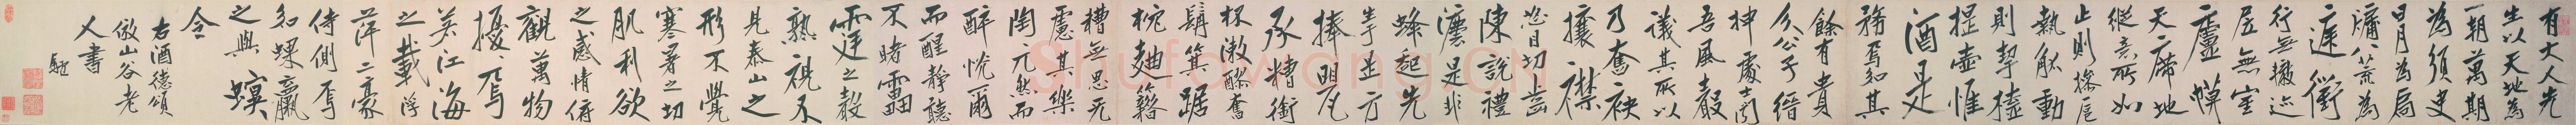 有大人先
生以天地為
一朝萬期
為須臾
日月為扃
牖八荒為
庭衢
行無轍迹
居無室
廬幙
天席地
縱意所如
止則操巵
執觚動
則挈榼
提壺惟
酒是
務焉知其
餘有貴
介公子縉
紳處士聞
吾風聲
議其所以
乃奮袂
攘襟
怒目切齒
陳說禮
灋是非
蜂起先
生于是方
捧罌
承糟銜
杯漱醪奮
髯箕踞
枕麯籍
糟無思無
慮其樂
陶兀然而
醉恍爾
而醒靜聽
不睹雷
霆之聲
熟視不
見泰山之
形不覺
寒暑之切
肌利欲
之感情俯
觀萬物
擾〻焉
若江海
之載浮
萍二豪
侍側焉
如蜾蠃
之與螟
令
右酒德頌
倣山谷老
人書